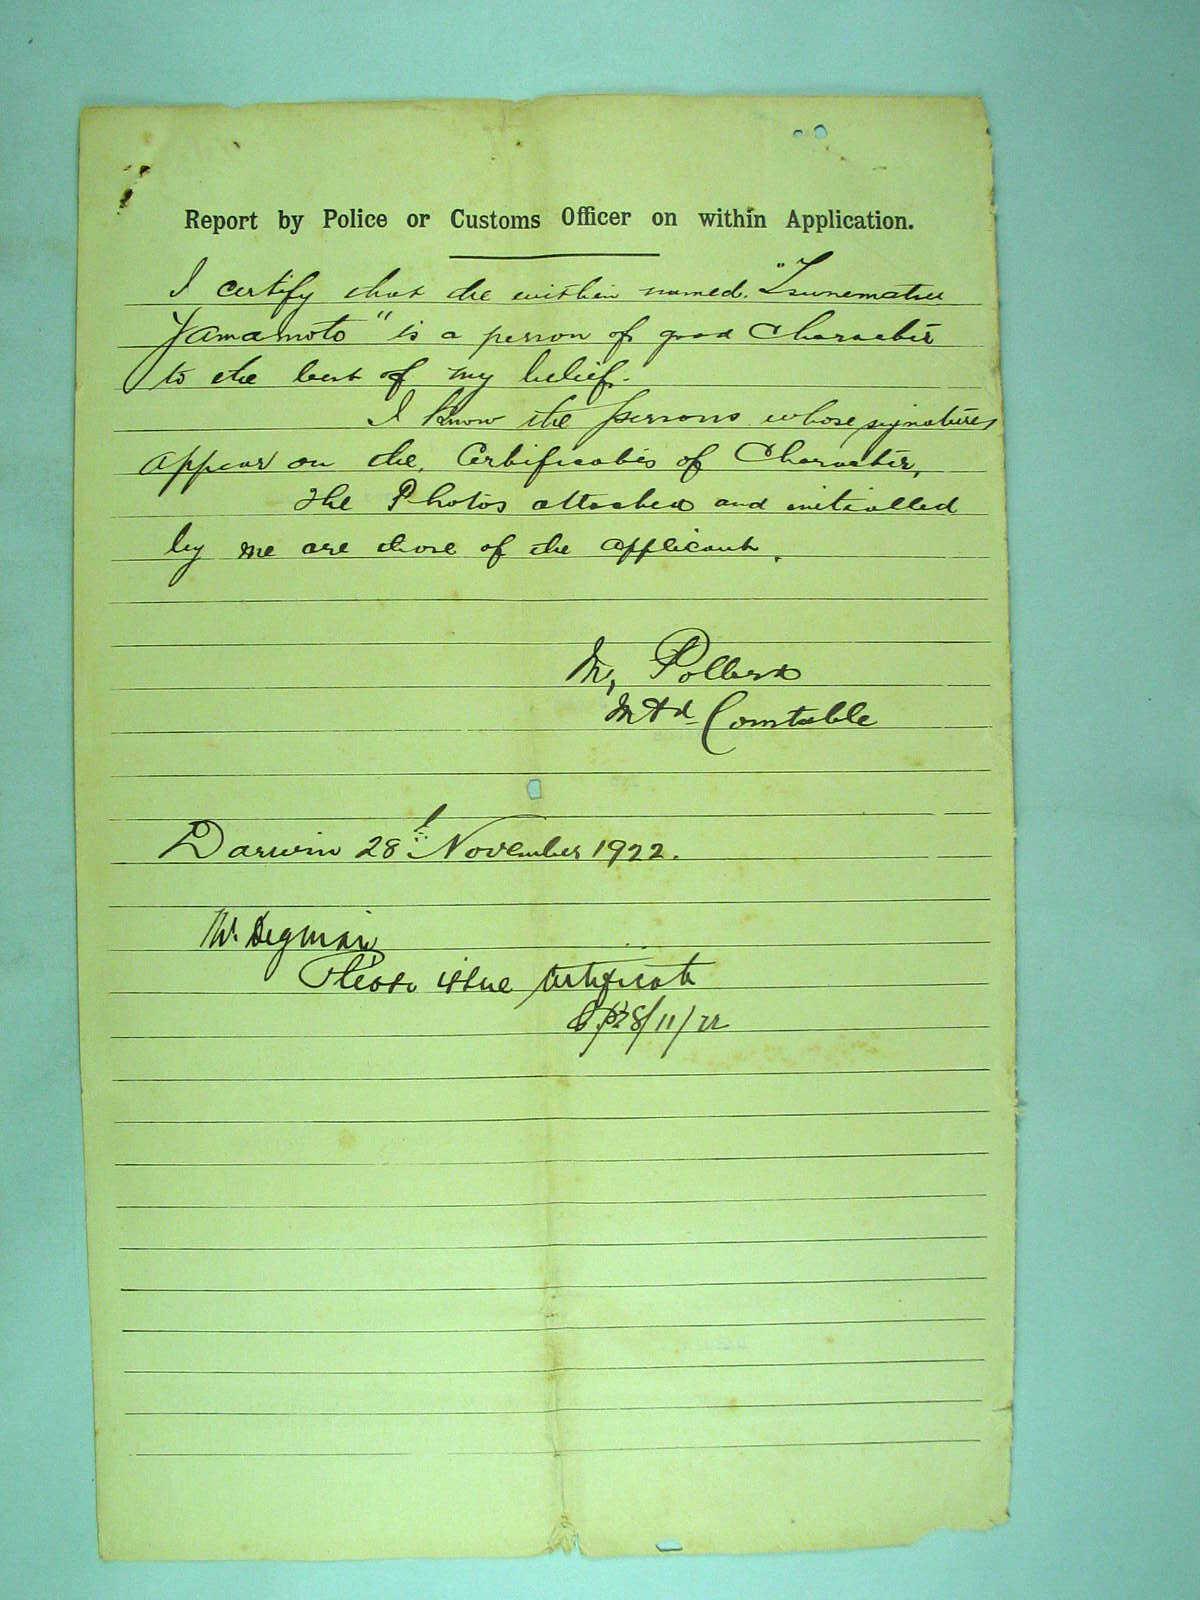 Report by Police or Customs Officer on within Application.
I certify that the within named. "Tsunematsu
Yamamoto" is a person of good Character
to the best of my belief.
I know the persons whose signatures
appear on the Certificates of Character,
The Photos attached and initialled
by me are those of the applicant.
M, Pollard
Mtd Constable
Darwin 28th November 1922.
Mr.
Please issue certificate
28/11/22